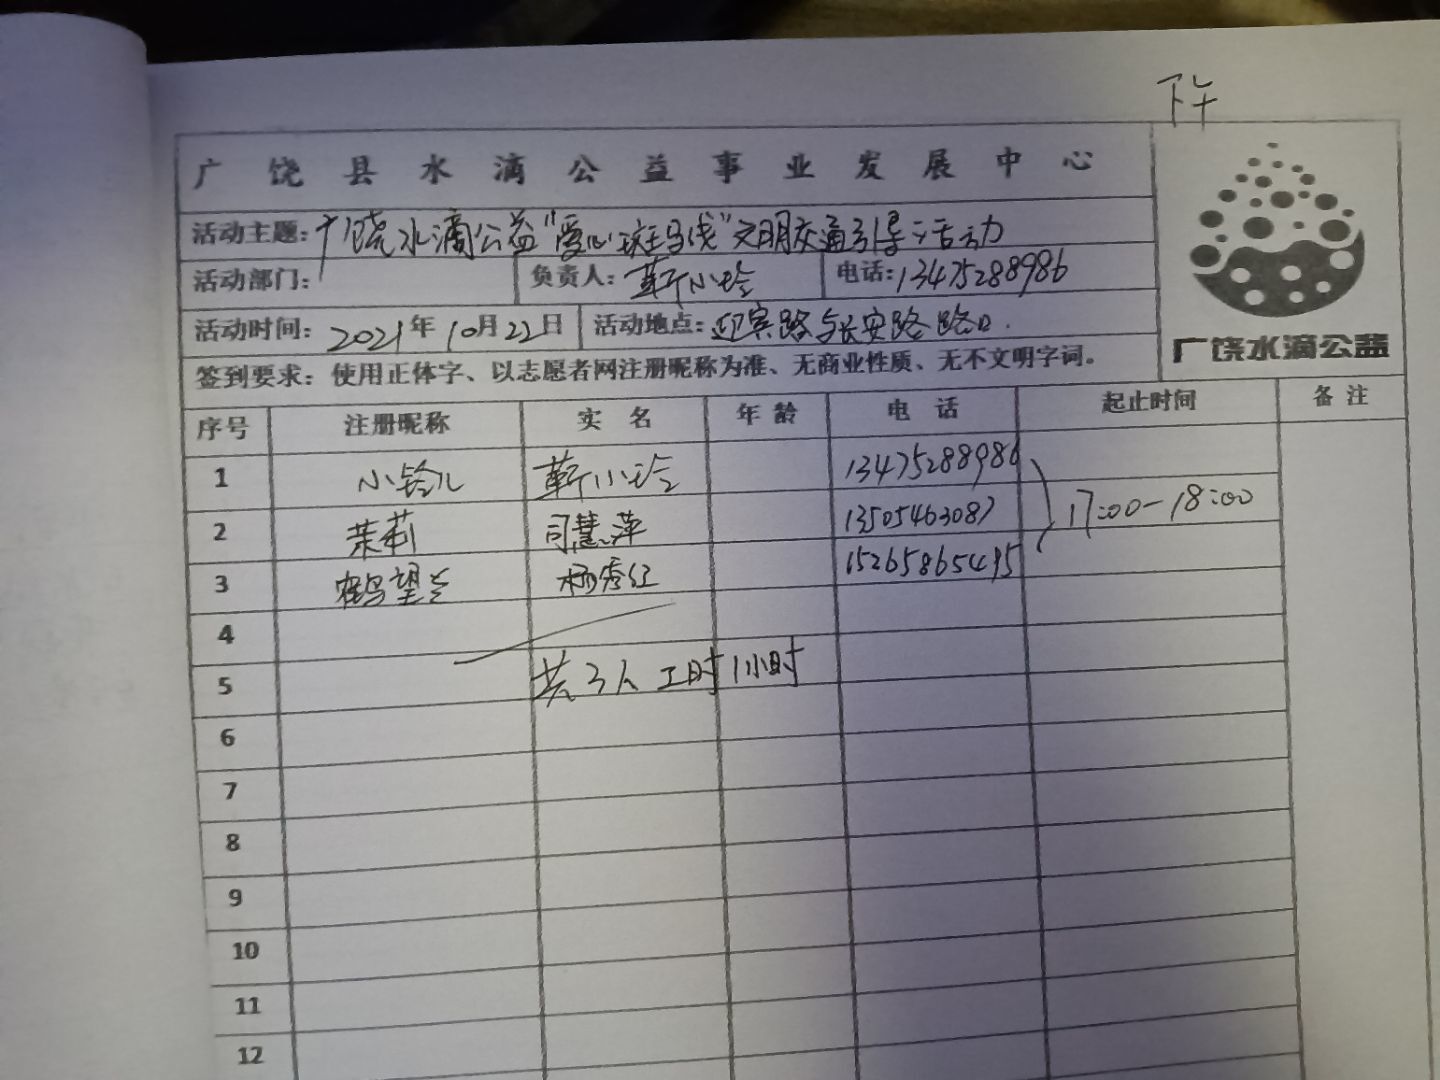 下午
广饶县水滴公益事业发展中心
活动主题：广饶水滴公益"爱心斑马线"文明交通引导活动
活动部门： 负责人：靳小玲 电话：13475288986
活动时间：2021年10月22日 活动地点：迎宾路与长安路路口.
广饶水滴公益
签到要求：使用正体字、以志愿者网注册昵称为准、无商业性质、无不文明字词。
序号 注册昵称 实名 年龄 电话 起止时间 备注
1 小铃儿 靳小玲 13475288986
2 茉莉 司慧萍 13505463087 17:00-18:00
3 鹤望兰 杨秀红 15265865495
4
5 共3人 工时1小时
6
7
8
9
10
11
12